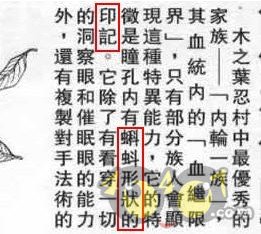 ・木之葉忍村中最優秀的
家族——「內輪一族」
其血統內的「血繼限
界」,只有部分族人會顯
現這種特異能力,它的特
徵是瞳孔內有蝌蚪形狀的
印記。它除了有看穿一切
的洞察眼和催眠眼的能力
外,還有複製對手法術的